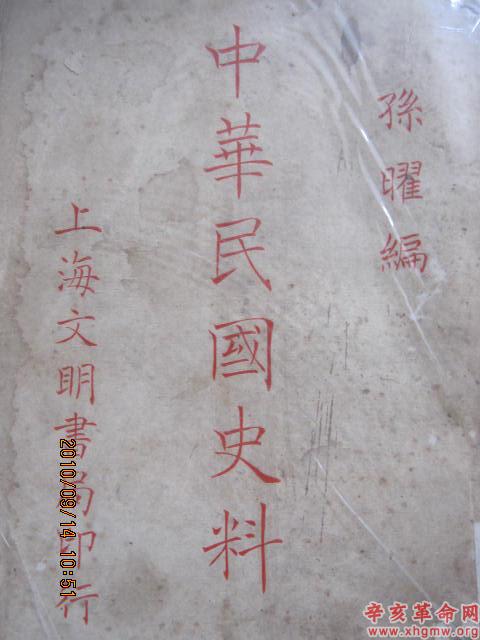 孫曜編
中華民國史料
上海文明書局印行
2010/09/14 10:51
辛亥革命网
www.xhgmw.org